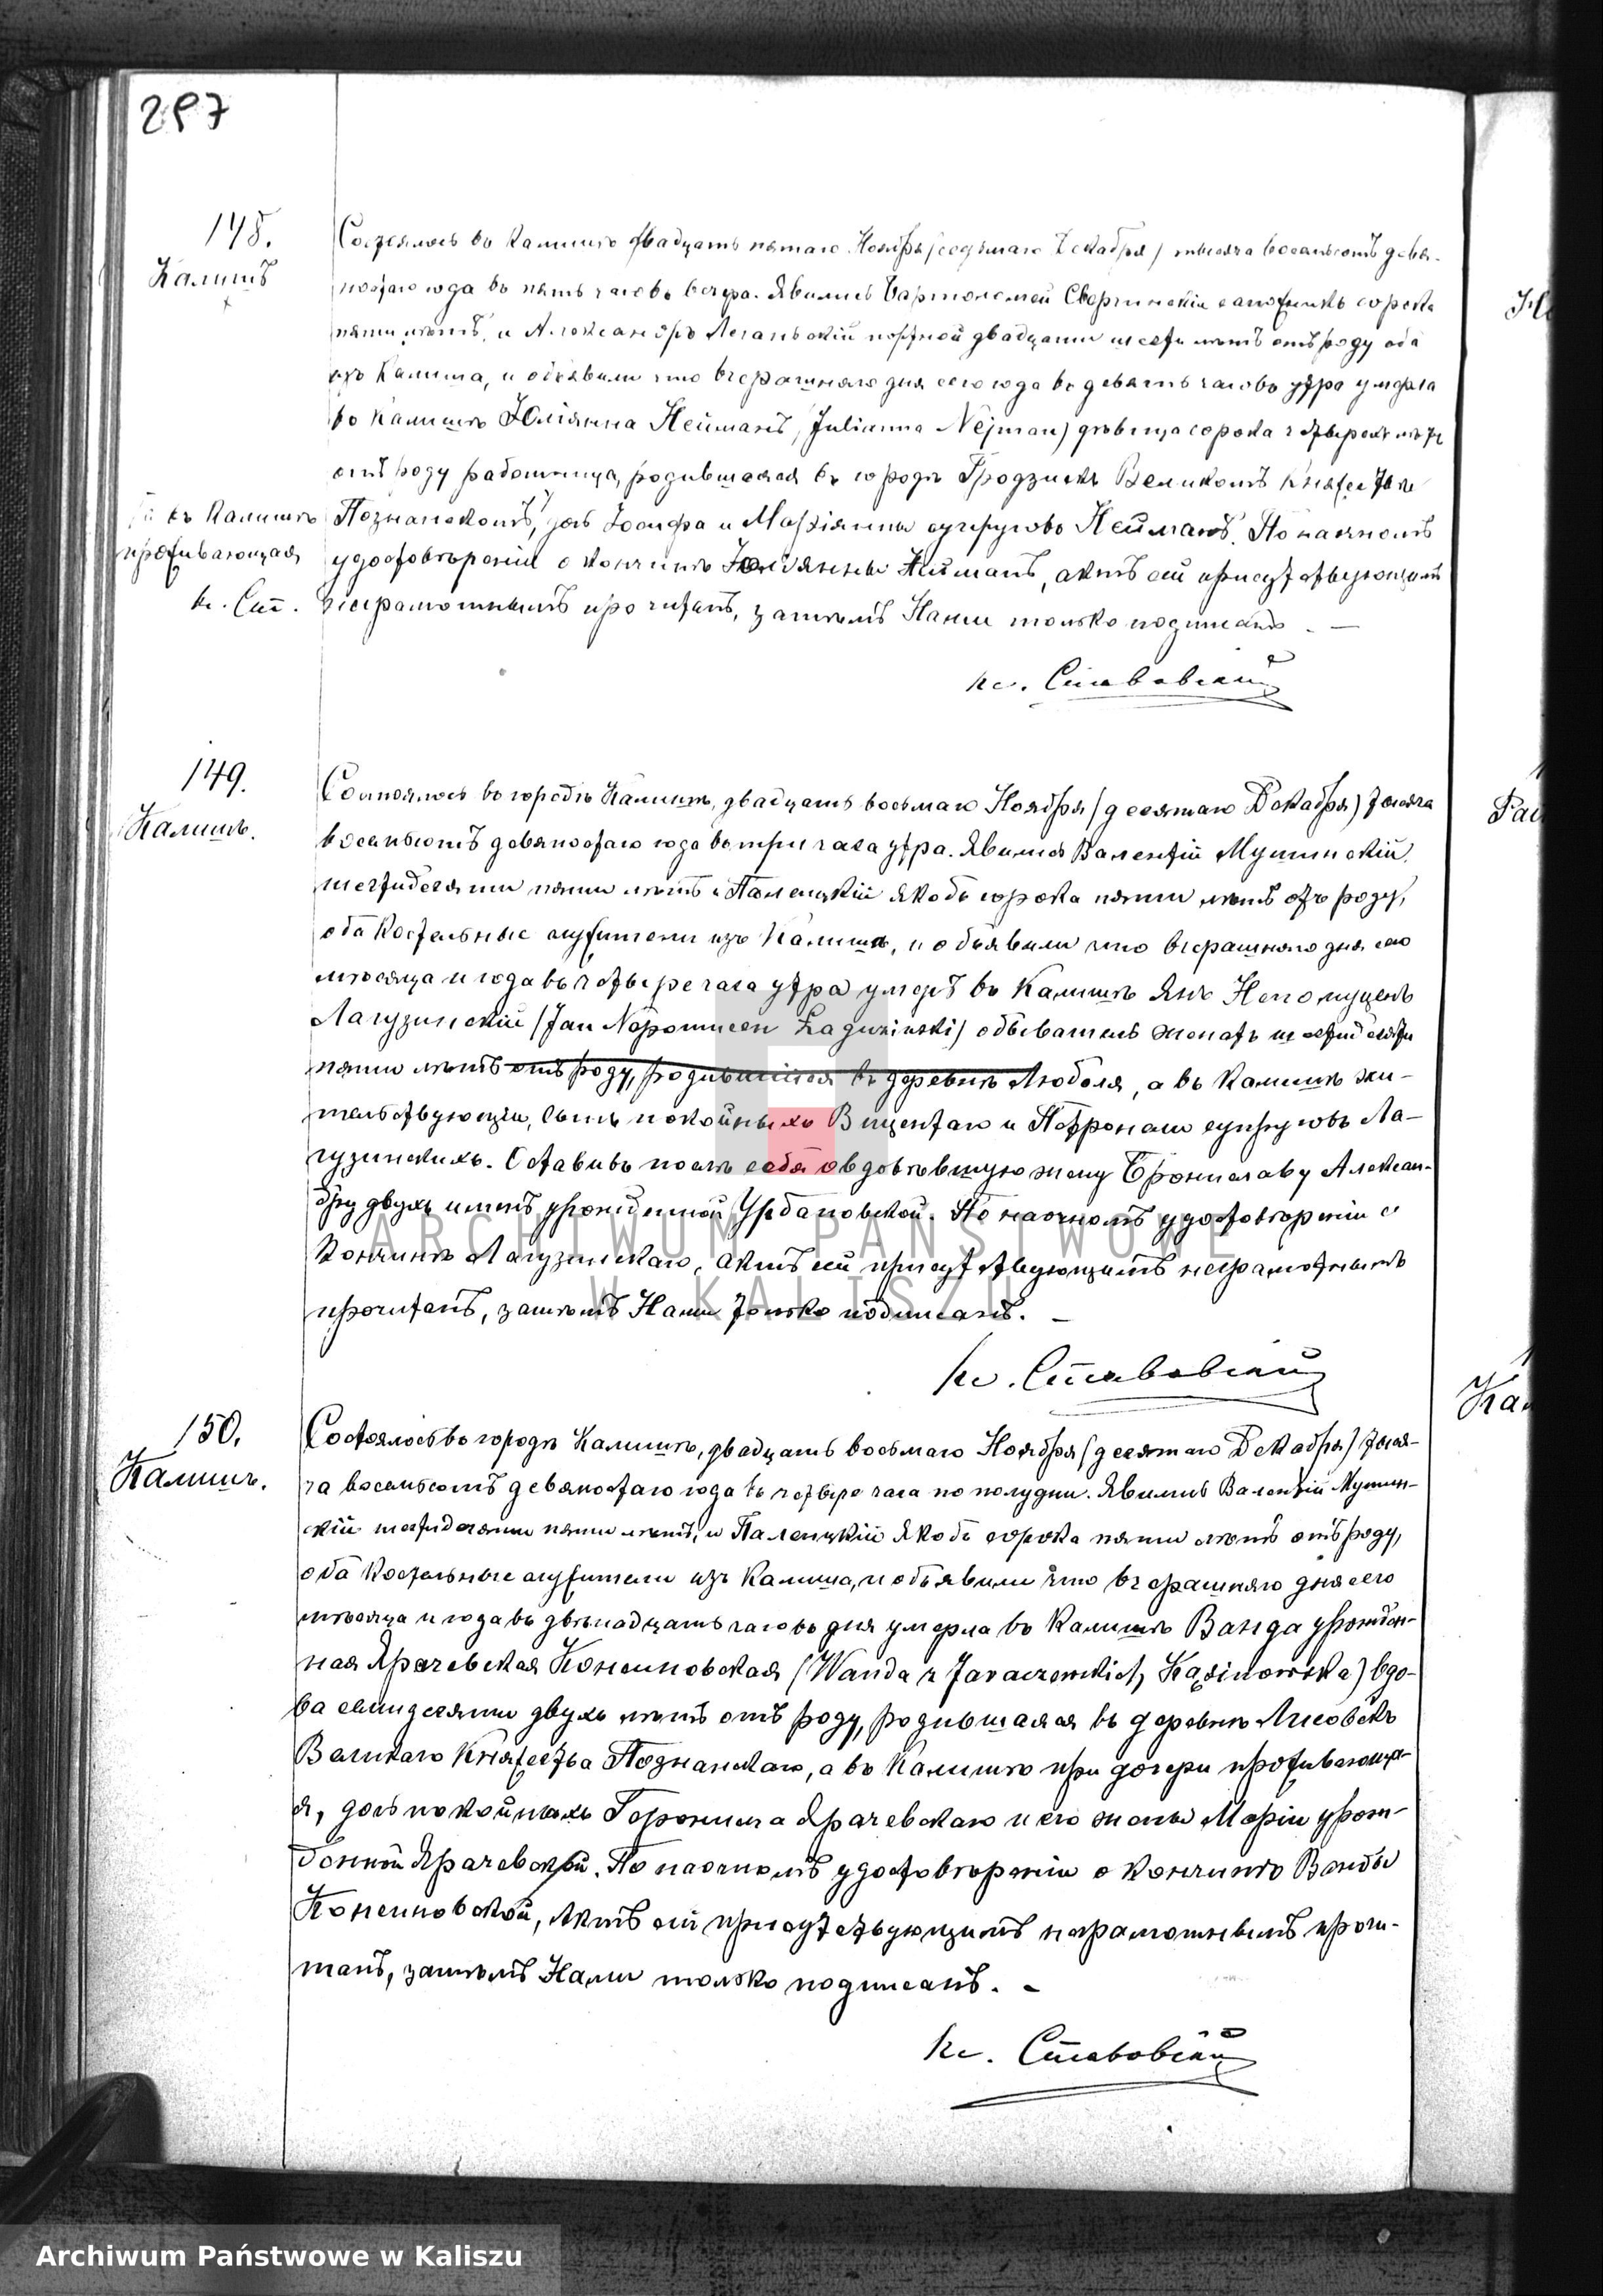 297
148.
Калишъ
Состоялось въ Калишѣ двадцать пятаго Ноября /седьмаго Декабря/ тысяча восемьсотъ девя-
ностаго года въ пять часовъ вечера. Явились Бартоломей Сворчинскій сапожникъ сорока
пяти лѣтъ, и Александръ портной двадцати шести лѣтъ отъ роду оба
изъ Калиша, и объявили что вчерашняго дня сего года въ девять часовъ утра умерла
въ Калишѣ Юліянна Нейманъ, /Julianna Nejman/ дѣвица сорока четырехъ лѣтъ
отъ роду работница, родившаяся въ городѣ Гродзискѣ Великомъ Княжествѣ
Познанскомъ, дочь Іосифа и Маріянны супруговъ Нейманъ. По наочномъ
удостовѣреніи о кончинѣ Юліянны Нейманъ, актъ сей присутствующимъ
неграмотнымъ прочитанъ, затѣмъ Нами только подписанъ. —
въ Калишѣ
проживающая
кс. Ст.
кс. Ставовскій
149.
Калишъ.
Состоялось въ городѣ Калишѣ, двадцать восьмаго Ноября /десятаго Декабря/ тысяча
восемьсотъ девяностаго года въ три часа утра. Явился Валентій Мушинскій,
шестидесяти пяти лѣтъ и Паленцкій Якобъ сорока пяти лѣтъ отъ роду,
оба костельные служители изъ Калиша, и объявили что вчерашняго дня сего
мѣсяца и года въ четыре часа утра умеръ въ Калишѣ Янъ Непомуценъ
Лагузинскій /Jan Nepomucen Łaguzinski/ обыватель женатъ шестидесяти
пяти лѣтъ отъ роду, родившійся въ деревнѣ Люболя, а въ Калишѣ жи-
тельствующій, сынъ покойныхъ Вицентаго и Петронели супруговъ Ла-
гузинскихъ. Оставивъ послѣ себя овдовѣвшую жену Брониславу Алексан-
дру двухъ именъ урожденной Урбановской. По наочномъ удостовѣреніи о
кончинѣ Лагузинскаго, актъ сей присутствующимъ неграмотнымъ
прочитанъ, затѣмъ Нами только подписанъ. —
кс. Ставовскій
150.
Калишъ.
Состоялось въ городѣ Калишѣ, двадцать восьмаго Ноября /десятаго Декабря/ тыся-
ча восемьсотъ девяностаго года въ четыре часа по полудни. Явились Валентій Мушин-
скій шестидесяти пяти лѣтъ, и Паленцкій Якобъ сорока пяти лѣтъ отъ роду,
оба костельные служители изъ Калиша, и объявили что вчерашняго дня сего
мѣсяца и года въ двѣнадцать часовъ дня умерла въ Калишѣ Ванда урожден-
ная Ярачевская Консиновская /Wanda z Jaraczewskich Kąsinowska/ вдо-
ва семидесяти двухъ лѣтъ отъ роду, родившаяся въ деревнѣ
Великаго Княжества Познанскаго, а въ Калишѣ при дочери проживающа-
я, дочь покойныхъ Геронима Ярачевскаго и его жены Маріи урож-
денной Ярачевской. По наочномъ удостовѣреніи о кончинѣ Ванды
Консиновской, актъ сей присутствующимъ неграмотнымъ прочи-
танъ, затѣмъ Нами только подписанъ. –
кс. Ставовскій
Ка
ARCHIWUM PAŃSTWOWE
W KALISZU
Archiwum Państwowe w Kaliszu